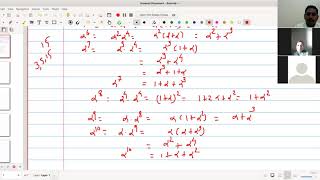 α⁶ = α²α⁴ = α²(1+α) = α²+α³
15
α⁷ = α³ α⁴ = α³(1+α)
3,5,15
= α³+α⁴
= α³+1+α
α⁷ = 1+α+α³
α⁸ = α⁴ α⁴ = (1+α)² = 1+2α+α² = 1+α²
α⁹ = α·α⁸ = α(1+α²) = α+α³
α¹⁰ = α·α⁹ = α(α+α³)
= α²+α⁴
α¹⁰ = 1+α+α²